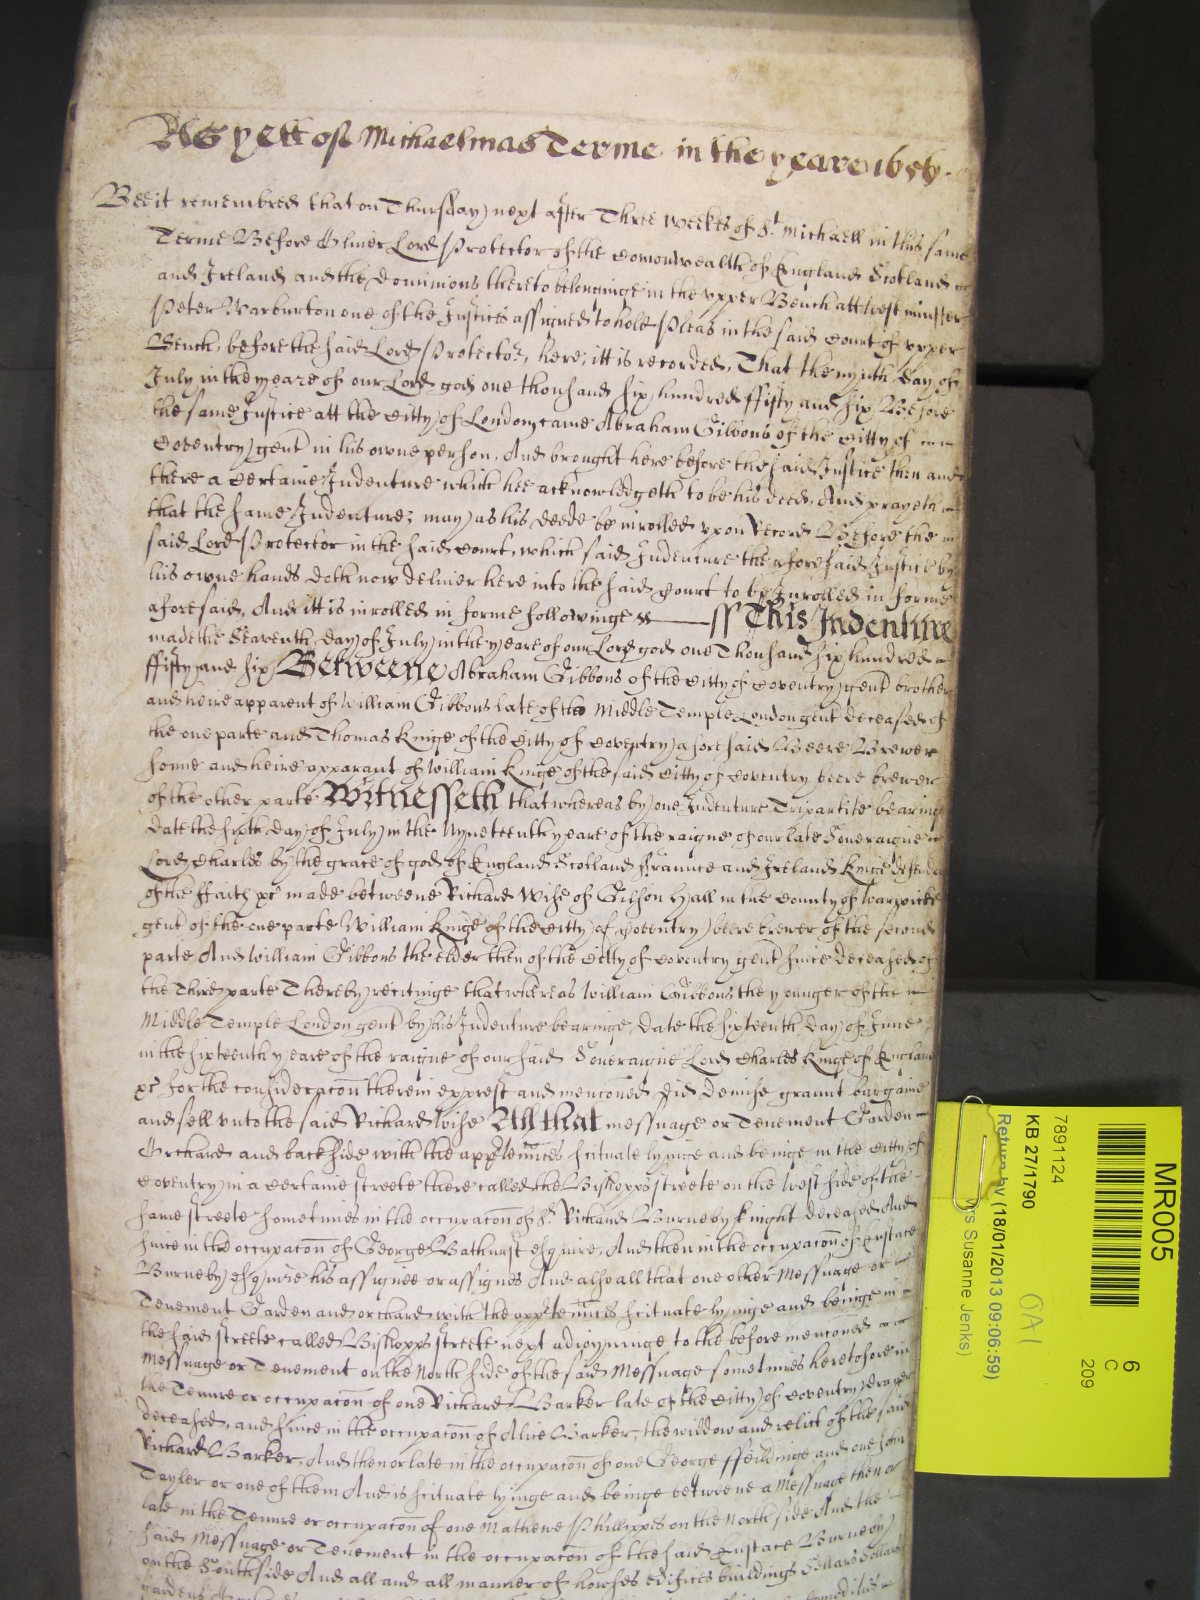 As yett of Michaelmas Terme in the yeare 1656
Bee it remembred that on Thursday next after Three weekes of St Michaell in this same
Terme Before Oliver Lord Protector of the Comonwealth of England Scotland
and Ireland and the dominions thereto belonginge in the upper Bench att Westminster
Peter Warburton one of the Justices assigned to hold Pleas in the said Court of upper
Bench, before the said Lord Protector, here, itt is recorded, That the nynth day of
July in the yeare of our Lord god one thousand six hundred ffifty and six Before
the same Justice att the Citty of London came Abraham Gibbons of the Citty of
Coventry gent in his owne person, And brought here before the said Justice then and
there a Certaine Indenture which hee acknowledgeth to be his deed, And prayeth
that the same Indenture, may as his deede be inrolled upon Record Before the
said Lord Protector in the said Court, which said Indenture the aforesaid Justice by
his owne hands doth now deliver here into the said Court to be Inrolled in forme
aforesaid, And itt is inrolled in forme followinge ss This Indenture
made the Seaventh day of July in the yeare of our Lord god one Thousand six hundred
ffifty and six Betweene Abraham Gibbons of the Citty of Coventry gent brother
and heire apparent of William Gibbons late of the Middle Temple London gent deceased of
the one parte and Thomas Kinge of the Citty of Coventry aforesaid Beere Brewer
sonne and heire apparant of William Kinge of the said Citty of Coventry beere brewer
of the other parte Witnesseth that whereas by one Indenture Tripartite bearinge
date the sixth day of July in the Nyneteenth yeare of the raigne of our late Soveraigne
Lord Charles by the grace of god of England Scotland ffraunce and Ireland Kinge defender
of the ffaith &c made betweene Richard Wise of Gilson Hall in the County of Warwicke
gent of the one parte William Kinge of the Citty of Coventry beere brewer of the second
parte And William Gibbons the elder then of the Citty of Coventry gent since deceased of
the Third parte Thereby recitinge that whereas William Gibbons the younger of the
Middle Temple London gent by his Indenture bearinge date the sixteenth day of June
in the sixteenth yeare of the raigne of our said Soveraigne Lord Charles Kinge of England
&c for the consideracon therein exprest and menconed did demise graunt bargaine
and sell unto the said Richard Wise All that messuage or Tenement Garden
Orchard and backside with the appurtenncs scituate lyinge and beinge in the Citty of
Coventry in a Certaine streete there called the Bishopps streete on the West side of the
same streete sometimes in the occupacon of Sr Richard Burneby Knight deceased And
since in the occupacon of George Bathurst esquire, And then in the occupacon of Eustace
Burneby esquire his assignee or assignes And also all that one other Messuage or
Tenement Garden and orchard with the appurtenncs scituate lyinge and beinge in
the said streete called Bishopps streete next adioyninge to the before menconed
Messuage or Tenement on the North side of the said Messuage sometimes heretofore in
the Tenure or occupacon of one Richard Barker late of the Citty of Coventry draper
deceased, and since in the occupacon of Alice Barker, the widdow and relict of the said
Richard Barker, And then or late in the occupacon of one George ffeildinge and one John
Tayler or one of them And is scituate lyinge and beinge betweene a Messuage then or
late in the Tenure or occupacon of one Mathewe Phillipps on the North side And the
said Messuage or Tenement in the occupacon of the said Eustace Burneby
on the South side And all and all manner of howses edifices buildings Sellars Sollars
gardens
MR005
6
C
209
7891124
KB 27/1790
Return by (18/01/2013 09:06:59)
Mrs Susanne Jenks)
OA1